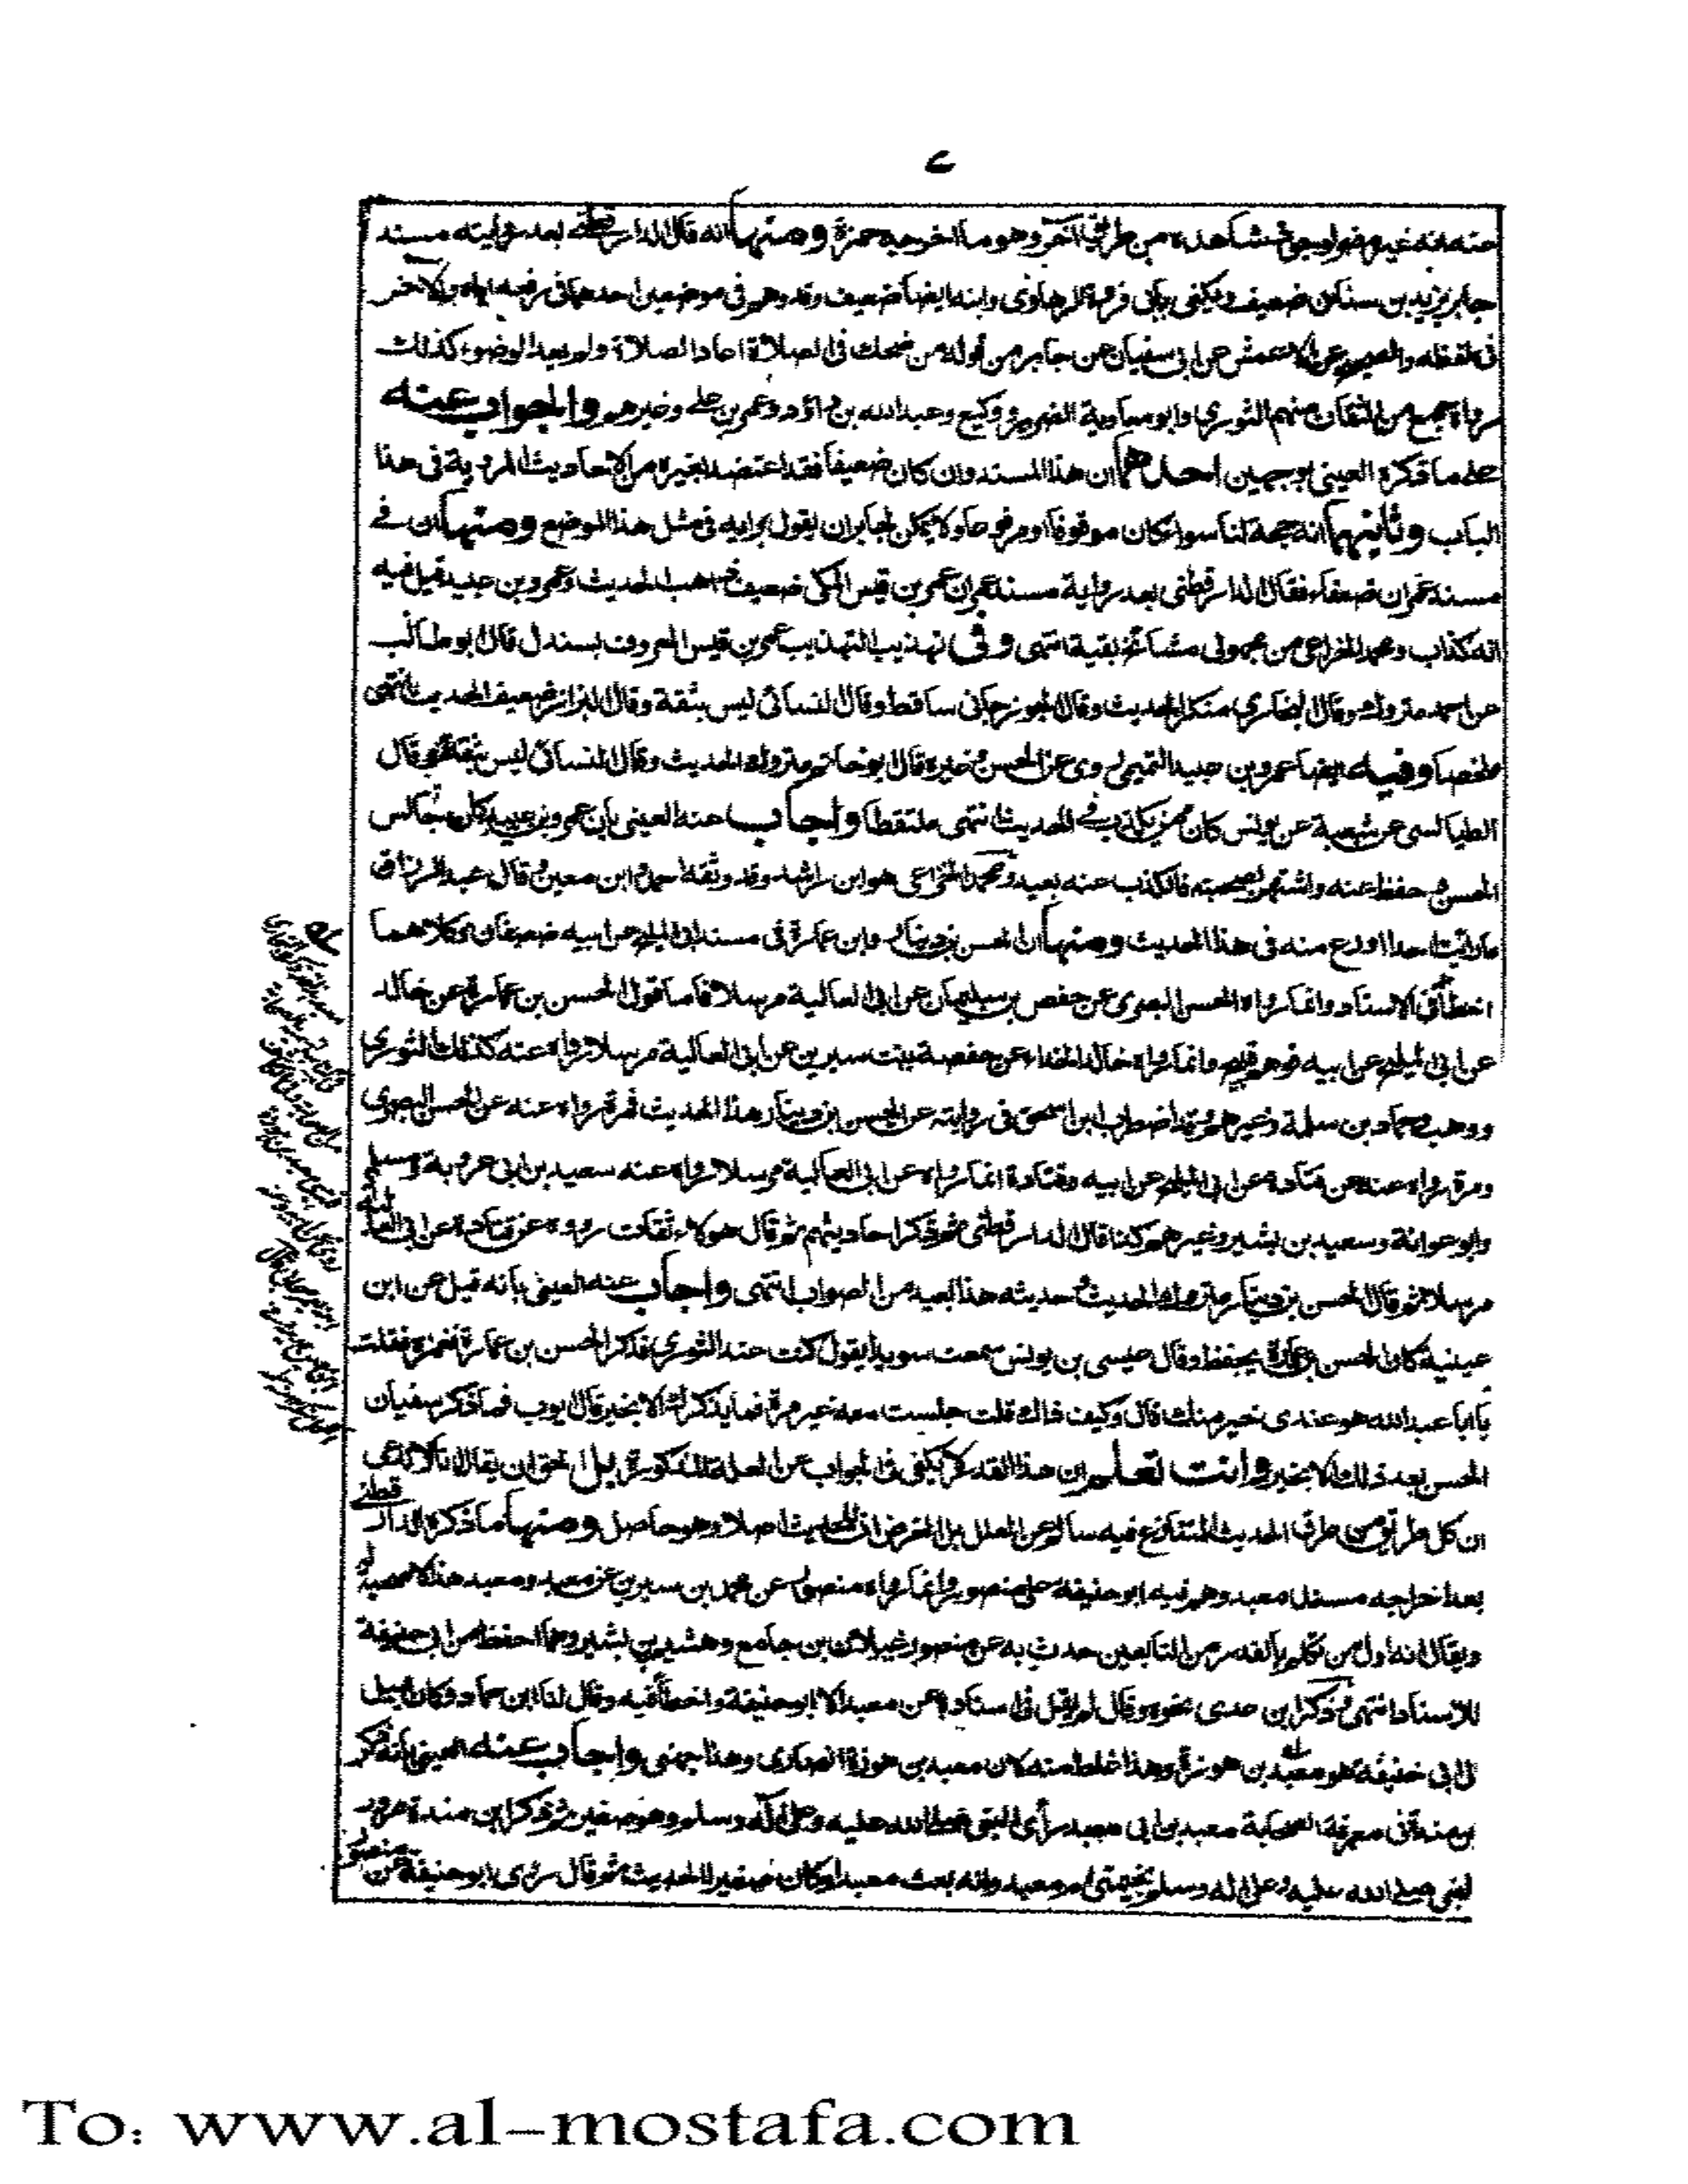 عنه انه غيره من طريق آخر وهو ما اخرجه حمزة ومنها انه قال الدارقطني بعد روايته مسند
جابر يزيد بن سنان ضعيف ويكنى بابى فروة الرهاوى وابنه ايضا ضعيف وقد وهم فى موضعين احدهما فى رفعه اياه والآخر
فى لفظه والصحيح عن الاعمش عن ابى سفيان عن جابر من قوله من ضحك فى الصلاة اعاد الصلاة ولم يعد الوضوء كذلك
رواه جمع من الثقات منهم الثورى وابو معاوية الضرير ووكيع وعبد الله بن داؤد وعمر بن على وغيرهم والجواب عنه
على ما ذكره العينى بوجهين احدهما ان هذا المسند وان كان ضعيفا فقد اعتضد بغيره من الاحاديث المروية فى هذا
الباب وثانيهما انه حجة لنا سواء كان موقوفا او مرفوعا ولا يمكن لجابر ان يقول برايه فى مثل هذا الموضع ومنها ان فى
مسند عمران ضعفاء فقال الدارقطنى بعد رواية مسند عمران عمر بن قيس المكى ضعيف ذاهب الحديث وعمرو بن عبيد قيل فيه
انه كذاب ومحمد الخزاعى من مجهولى مشائخ بقية انتهى وفى تهذيب التهذيب عمر بن قيس المعروف بسندل قال ابو طالب
عن احمد متروك وقال البخارى منكر الحديث وقال الجوزجانى ساقط وقال النسائى ليس بثقة وقال البزار ضعيف الحديث انتهى
ملخصا وفيه ايضا عمرو بن عبيد التميمى روى عن الحسن وغيره قال ابو حاتم متروك الحديث وقال النسائى ليس بثقة وقال
الطيالسى عن شعبة عن يونس كان عمرو يكذب فى الحديث انتهى ملتقطا واجاب عنه العينى بان عمرو بن عبيد كان يجالس
الحسن حفظ عنه واشتهر بصحبته فالكذب عنه بعيد ومحمد الخزاعى هو ابن راشد وقد وثقه احمد وابن معين وقال عبد الرزاق
ما رأيت احدا اورع منه فى هذا الحديث ومنها ان الحسن بن دينار وابن عمارة فى مسند ابى المليح عن ابيه ضعيفان وكلاهما
اخطآ فى الاسناد وانما رواه الحسن البصرى عن حفص بن سليمان عن ابى العالية مرسلا فاما قول الحسن بن عمارة عن خالد
عن ابى المليح عن ابيه فوهم قبيح وانما رواه خالد الحذاء عن حفصة بنت سيرين عن ابى العالية مرسلا رواه عنه كذلك الثورى
ووهب وحماد بن سلمة وغيرهم وقد اضطرب ابن اسحق فى روايته عن الحسن بن دينار هذا الحديث فمرة رواه عنه عن الحسن البصرى
ومرة رواه عنه عن قتادة عن ابى المليح عن ابيه وقتادة انما رواه عن ابى العالية مرسلا رواه عنه سعيد بن ابى عروبة ومسلم
وابو عوانة وسعيد بن بشير وغيرهم كذا قال الدارقطنى ثم ذكر احاديثهم ثم قال هؤلاء ثقات رووه عن قتادة عن ابى العالية
مرسلا ثم قال الحسن بن دينار متروك الحديث وحديثه هذا بعيد من الصواب انتهى واجاب عنه العينى بانه قيل عن ابن
عيينة كان الحسن بن عمارة يحفظ وقال عيسى بن يونس سمعت سويدا يقول كنت عند الثورى فذكر الحسن بن عمارة فغمزه فقلت
يا ابا عبد الله هو عندى خير منك قال وكيف ذاك قلت جلست معه غير مرة فما يذكرك الا بخير قال ايوب فما ذكر سفيان
الحسن بعد ذلك الا بخير وانت تعلم ان هذا القدر لا يكفى فى الجواب عن العلة المذكورة بل الحق ان يقال انا لا ندعى
ان كل طريق من طرق الحديث المتنازع فيه سالم عن العلل بل الغرض ان للحديث اصلا وهو حاصل ومنها ما ذكره الدارقطنى
بعد اخراجه مسند معبد وهم فيه ابو حنيفة على منصور وانما رواه منصور عن محمد بن سيرين عن معبد ومعبد هذا لا صحبة له
ويقال انه اول من تكلم بالقدر من التابعين حدث به عن منصور غيلان بن جامع وهشيم بن بشير وهما احفظ من ابى حنيفة
للاسناد انتهى وذكر ابن عدى نحوه وقال لم يقل فى اسناده عن معبد الا ابو حنيفة واخطأ فيه وقال لنا ابن حماد وكان يميل
الى ابى حنيفة هو معبد بن هوذة وهذا غلط منه لان معبد بن هوذة انصارى وهذا جهنى واجاب عنه العينى بانه ذكر
بن مندة فى معرفة الصحابة معبد بن ابى معبد رأى النبى صلى الله عليه وعلى آله وسلم وهو صغير ثم ذكر ابن مندة مرور
النبى صلى الله عليه وعلى آله وسلم بخيمتى ام معبد وانه بعث معبدا وكان صغيرا الحديث ثم قال روى ابو حنيفة عن منصور
To: www.al-mostafa.com